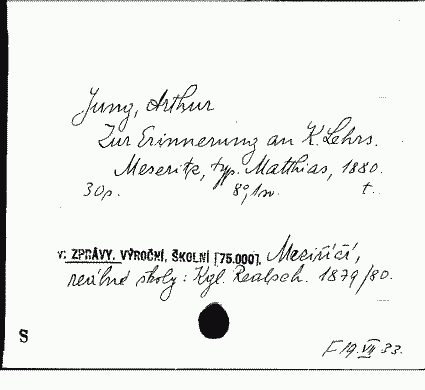 Jung, Arthur
Zur Erinnerung an K. Lehrs.
Meseritz, typ. Matthias, 1880.
30p. 8°, 1sv. t.
v: ZPRÁVY, VÝROČNÍ, ŠKOLNÍ [75.000]. Meziříčí,
reálné školy: Kgl. Realsch. 1879/80.
S
F 19.VII 33.